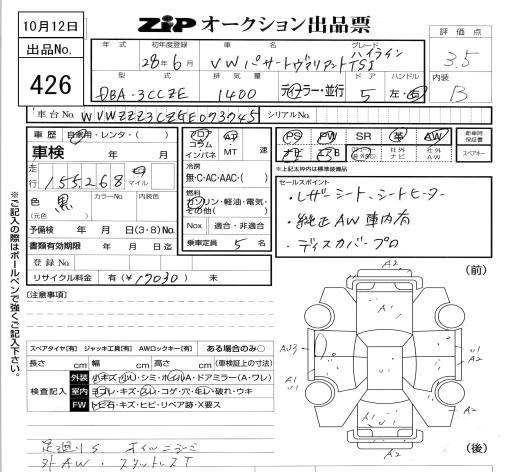 10月12日
ZIPオークション出品票
評価点
3.5
出品No.
426
年式
初年度登録
車名
グレード
28年6月
VWパサートヴァリアント
ハイライン
TSI
内装
B
型式
排気量
ドア
ハンドル
DBA-3CCZE
1400
元ディーラー・並行
5
左・右
車台No.
シリアルNo.
車歴
自家用・レンタ・( )
フロア
コラム
インパネ
AT
MT
速
PS
PW
SR
革
AW
新車時
保証書
車検
年
月
日
社外
ナビ
社外
AW
スペアキー
走行
155,268
マイル
冷房
無・C・AC・AAC・( )
※上記太枠内は標準装備品
色
(元色)
黒
カラーNo.
内装色
燃料
ガソリン・軽油・電気・
その他( )
セールスポイント
・レザーシート、シートヒーター
・純正AW車内有
・ディスカバープロ
予備検
年 月 日(3・8)No.
Nox
適合・非適合
書類有効期限
年 月 日迄
乗車定員
5
名
登録No.
リサイクル料金
有(¥17030)
未
※ご記入の際はボールペンで強くご記入下さい。
[注意事項]
(前)
A2
A1
スペアタイヤ[有] ジャッキ工具[有] AWロックキー[有] ある場合のみ○
長さ cm 幅 cm 高さ cm (車検証上の寸法)
AU3
U1
A2
検査記入
外装
小キズ・小U・シミ・ホイルA・ドアミラー(A・ワレ)
室内
ヨゴレ・キズ・スレ・コゲ・穴・キレ・破れ・ウキ
FW
トビ石・キズ・ヒビ・リペア跡・X要ス
A1
U1
A1
U1
A2
A2
(後)
足廻りS オイルニジミ
外AW・スタットレスT